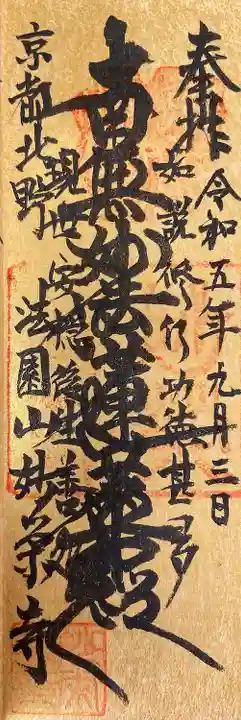 奉拝 令和五年九月三日
如説修行功徳甚多
南無妙法蓮華経
現世安穏後生善処
京都北野 法園山妙栄寺